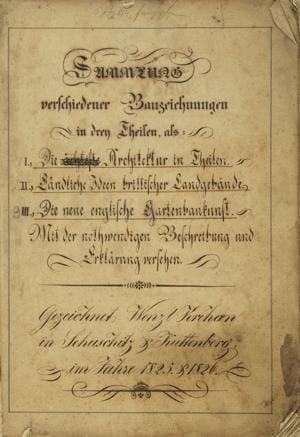 SAMMLUNG
verschiedener Bauzeichnungen
in drey Theilen, als:
I., Die Architektur in Theilen.
II., Ländliche Ideen brittischer Landgebände
III., Die neue englische Gartenbaukunst.
Mit der nothwendigen Beschreibung und
Erklärung versehen.
Gezeichnet Wenzl
in & Kuttenberg,
im Jahre 1825 & 1826.